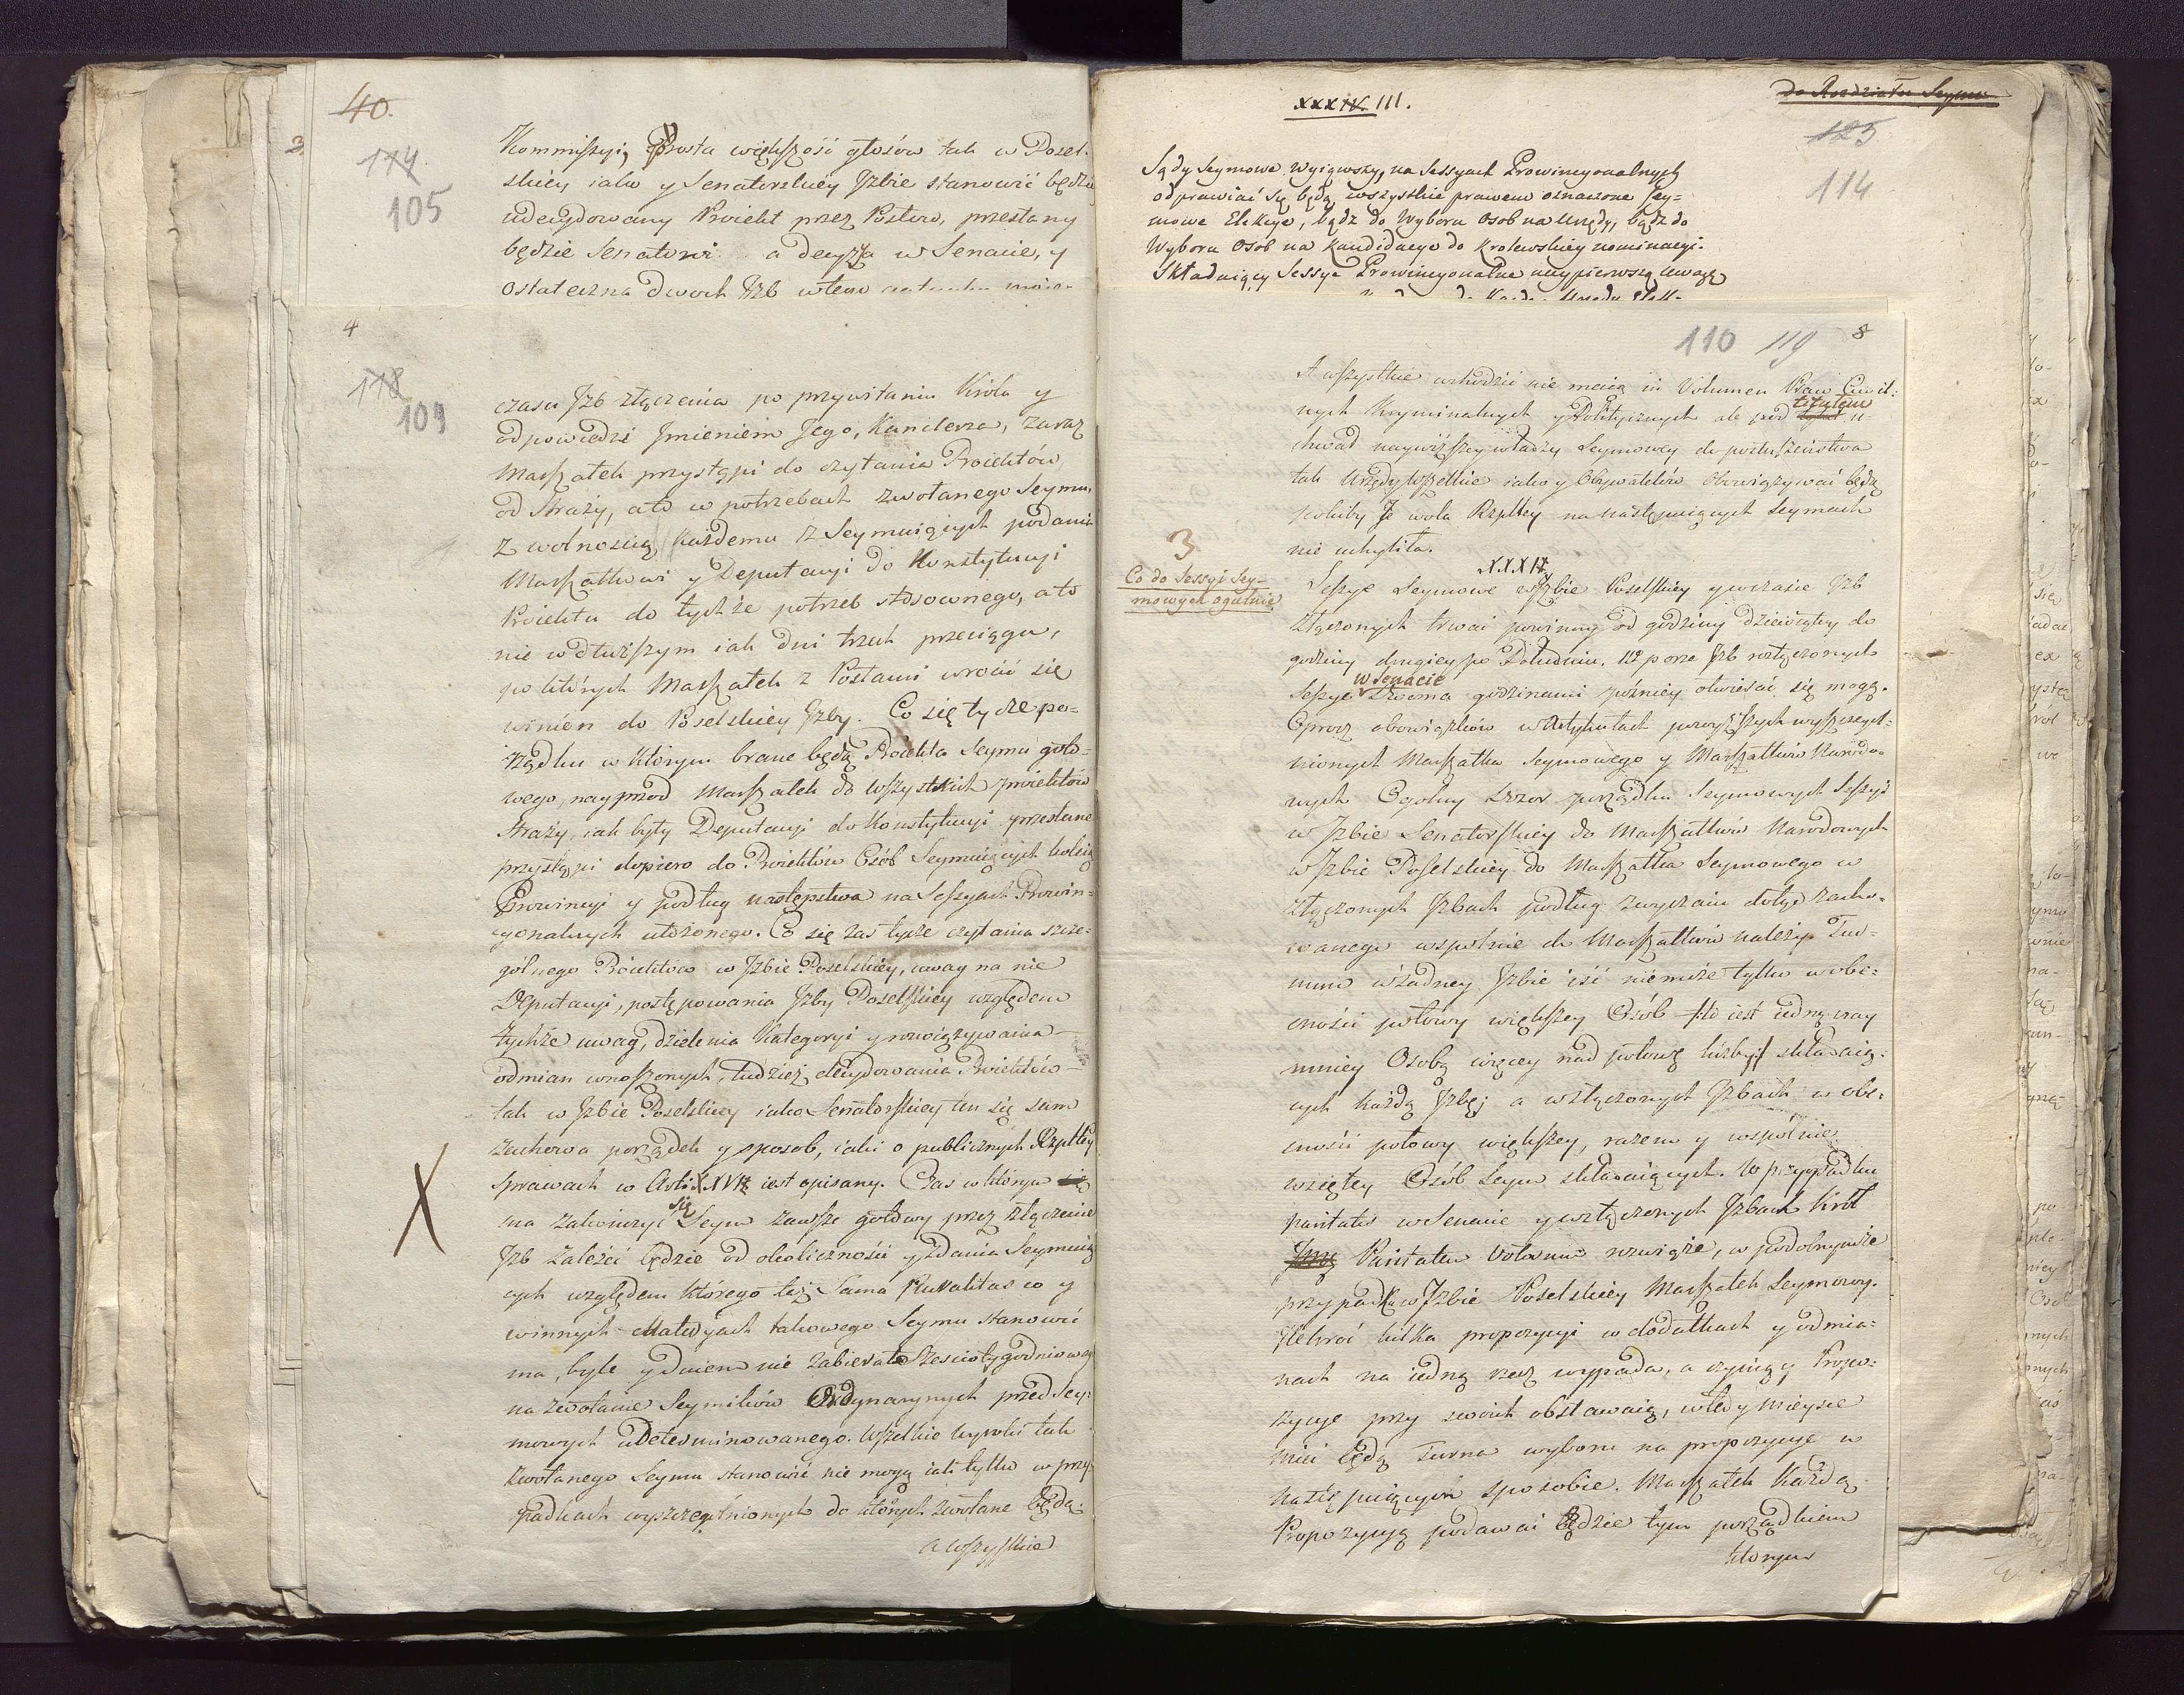 40.
3
174
105
Kommissyią Prosta większość głosów tak w Posel-
skiey iako y Senatorskiey Jzbie stanowić będzie
udecydowany Proiekt przez Posłow, przesłany
będzie Senatowi a decyzya w Senacie, y
ostateczna dwoch Jzb w tem
4
178
109
czasu Jzb złączenia po przywitaniu Króla y
odpowiedzi Jmieniem Jego, Kanclerza, zaraz
Marszałek przystąpi do czytania Proiektów
od Straży, a to w potrzebach zwołanego Seymu,
z wolnością każdemu z Seymuiących podania
Marszałkowi y Deputacyi do Konstytucyi
Proiektu do tychże potrzeb stosownego, a to
nie w dłuższym iak dni trzech przeciągu,
po których Marszałek z Posłami wrócić się
winien do Poselskiey Jzby. Co się tycze po-
rządku w którym brane będą Proiekta Seymu goto-
wego, nayprzod Marszałek do wszystkich proiektów
Straży, iak były Deputacyi do Konstytucyi przesłane
przystąpi dopiero do Proiektów Osób Seymuiących koleią
Prowincyi y podług następstwa na Sessyach Prowin-
cyonalnych ułożonego. Co się zaś tycze czytania szcze-
gólnego Proiektów w Jzbie Poselskiey, uwag na nie
Deputacyi, postępowania Jzby Poselskiey względem
tychże uwag, dzielenia Kategoryi y rozwiązywania
odmian wnoszonych, tudzież decydowania Proiektów
tak w Jzbie Poselskiey iako Senatorskiey ten się sam
zachowa porządek y sposob, iaki o publicznych Rzpltey
sprawach w Arti XXVII iest opisany. Czas w którym się
ma zakończyć się Seym zawsze gotowy przez złączenie
Jzb zależeć będzie od okoliczności y zdania Seymuią
cych względem którego taż sama Pluralitas co y
w innych Materyach takowego Seymu stanowić
ma, byle y dniem nie zabierał Sześciotygodniowey
na zwołanie Seymików Ordynaryinych przed Sey-
mowych udeterminowanego. Wszelkie wyroki tak
zwołanego Seymu stanowić nie mogą iak tylko w przy-
padkach wyszczególnionych do których zwołane będą:
a wszystkie
X
XXXIV III.
do Rozdziału Seymu
125
114
Sądy Seymowe wyiąwszy, na Sessyach Prowincyonalnych
odprawiać się będą wszystkie prawem oznaczone Sey-
mowe Elekcye, bądz do Wyboru Osob na Urzędy, bądz do
Wyboru Osob na Kandidacye do Krolewskiey nominacyi.
Składaiący Sessye Prowincyonalne nayprierwszą uwagę
110 119
8
A wszystkie wchodzić nie maią in Volumen Praw Cywil-
nych Kryminalnych y Politycznych ale pod tytułem u-
chwał naywyższey władzy Seymowey do posłuszeństwa
tak Urzędy wszelkie iako y Obywatelów obowiązywać będą
pokiby Je wola Rzpltey na następuiących Seymach
nie uchyliła.
XXXIX
3
Co do Sessyi Sey-
mowych ogulnie
Sessye Seymowe w Jzbie Poselskiey y w czasie Jzb
złączonych trwać powinny od godziny dziewiątey do
godziny drugiey po Południu. W porze Jzb rozłączonych
w Senacie
Sessye dwoma godzinami poźniey otwierać się mogą.
Oprocz obowiązkow w Artykułach powyższych wyszczegul-
nionych Marszałka Seymowego y Marszałków Narodo-
wych Ogolny dozor porządku Seymowych Sessyi
w Jzbie Senatorskiey do Marszałków Narodowych
w Jzbie Poselskiey do Marszałka Seymowego w
złączonych Jzbach podług zwyczaiu dotąd zacho-
wanego wspolnie do Marszałków należy. Tur-
num w żadney Jzbie iść nie może tylko w obe-
cności połowy większey Osób to iest iedną nay
mniey Osobą więcey nad połowę liczby składaią-
cych każdą Jzbę; a w złączonych Jzbach w obe-
cności połowy większey, razem y wspolnie
wziętey Osób Seym składaiących. W przypadku
paritatis w Senacie y w złączonych Jzbach Król
Paritatem Votorum rozwiąże, w podobnymże
przypadku w Jzbie Poselskiey Marszałek Seymowy.
Jlekroć kilka propozycyi w dodatkach y odmia-
nach na iedną rzecz wypada, a czyniący Propo-
zycye przy swoich obstawaią, wtedy mieysce
mieć będą turna wyboru na propozycye w
następuiącym sposobie. Marszałek każdą
Propozycyą podawać będzie tym porządkiem
którym